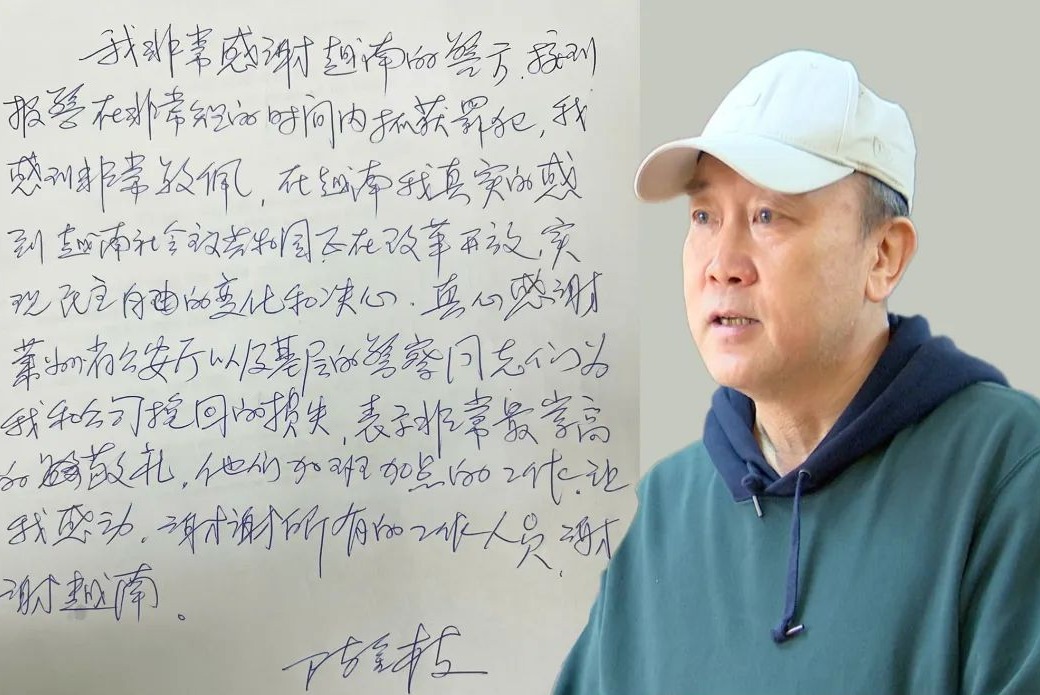 我非常感谢越南的警方，接到
报警在非常短的时间内抓获罪犯，我
感到非常敬佩，在越南我真实的感
到越南社会主义共和国正在改革开放，实
现民主自由的变化和决心．真心感谢
莱州省公安厅以及基层的警察同志们为
我和公司挽回的损失，表示非常最崇高
的敬礼，他们加班加点的工作，让
我感动．谢谢所有的工作人员，谢
谢越南。